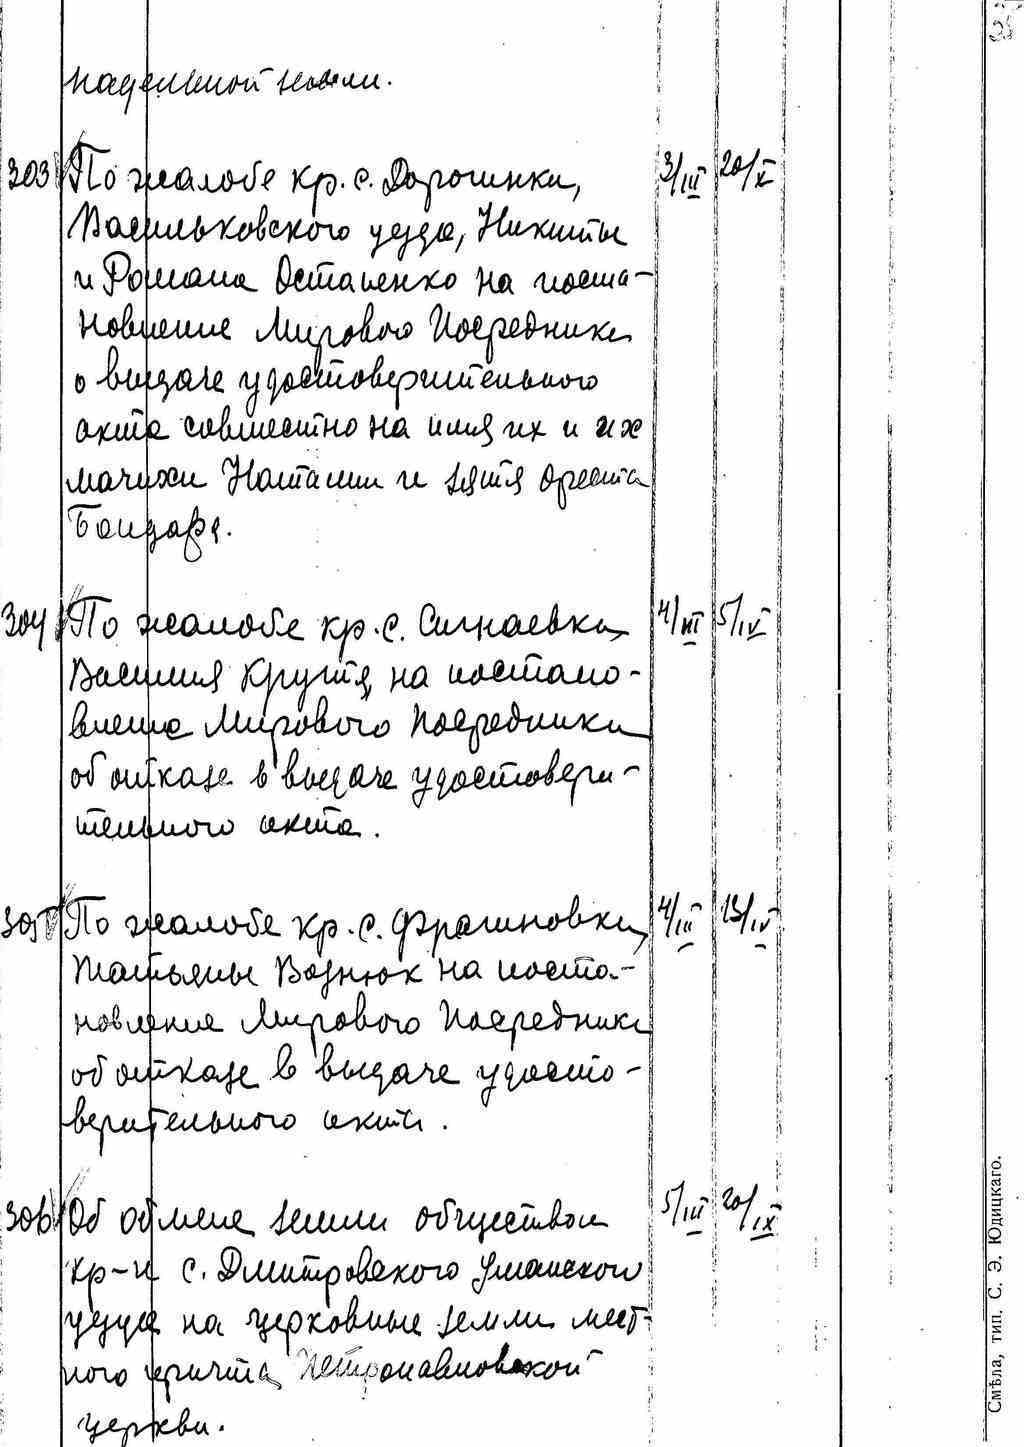 надельной земли.
303 По жалобе кр. с. Дорогинки, 3/III 20/X
Васильковского уезда, Никиты
и Романа Остапенко на поста-
новление Мирового Посредника
о выдаче удостоверительного
акта совместно на имя их и их
мачихи Наталии и зятя Ореста
Бондаря.
304 По жалобе кр. с. Сигнаевки, 4/III 5/IV
Василия Кругля, на постано-
вление Мирового Посредника
об отказе в выдаче удостовери-
тельного акта.
305 По жалобе кр. с. Драгиновки, 4/III 13/IV
Татьяны Вознюк на поста-
новление Мирового Посредника
об отказе в выдаче удосто-
верительного акта.
306 Об обмене земли обществом 5/III 20/IX
кр-н с. Дмитровского Уманского
уезда на церковные земли мест-
ного причта Петропавловской
церкви.
Смѣла, тип. С. Э. Юдицкаго.